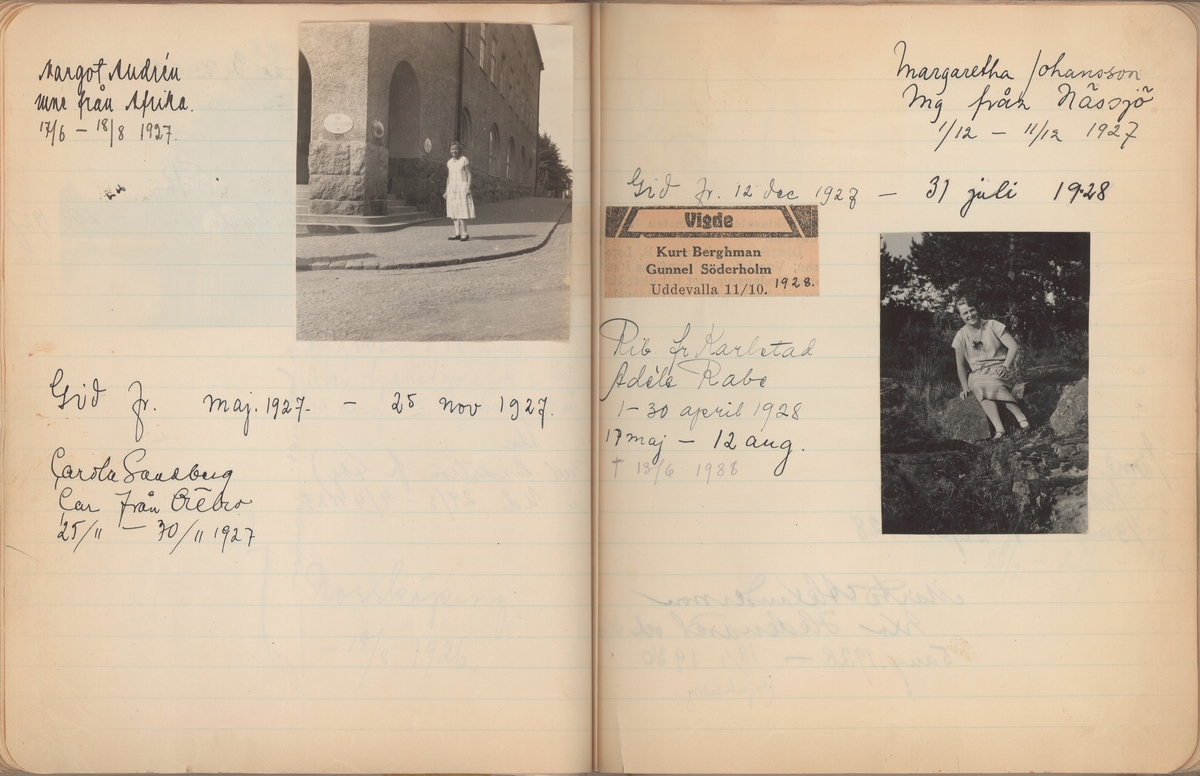 Margot Andrén
från Afrika.
17/6 – 18/8 1927.
Gid fr. maj. 1927. – 25 nov 1927.
Carola Sandberg
Car från Örebro
25/11 – 30/11 1927
Margaretha Johansson
Mg från Nässjö
1/12 – 11/12 1927
Gid fr. 12 dec 1927 – 31 juli 1928
Vigde
Kurt Berghman
Gunnel Söderholm
Uddevalla 11/10. 1928.
Rib fr Karlstad
Adèle Rabe
1–30 april 1928
17 maj – 12 aug.
† 13/6 1938